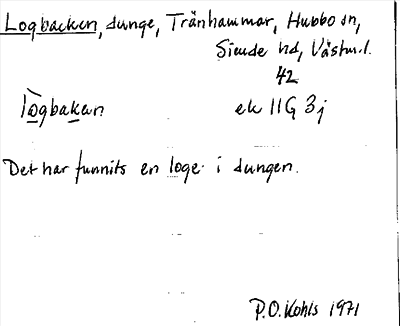 Logbacken, dunge, Tränhammar, Hubbo sn,
Siende hd, Västm.l.
42
lògbakan ek 11G 3j
Det har funnits en loge i dungen.
P.O. Kohls 1971